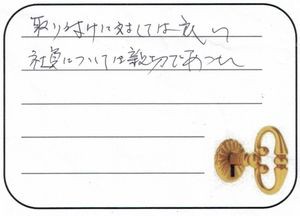 取り付けに対しましては良い
社員については親切であった